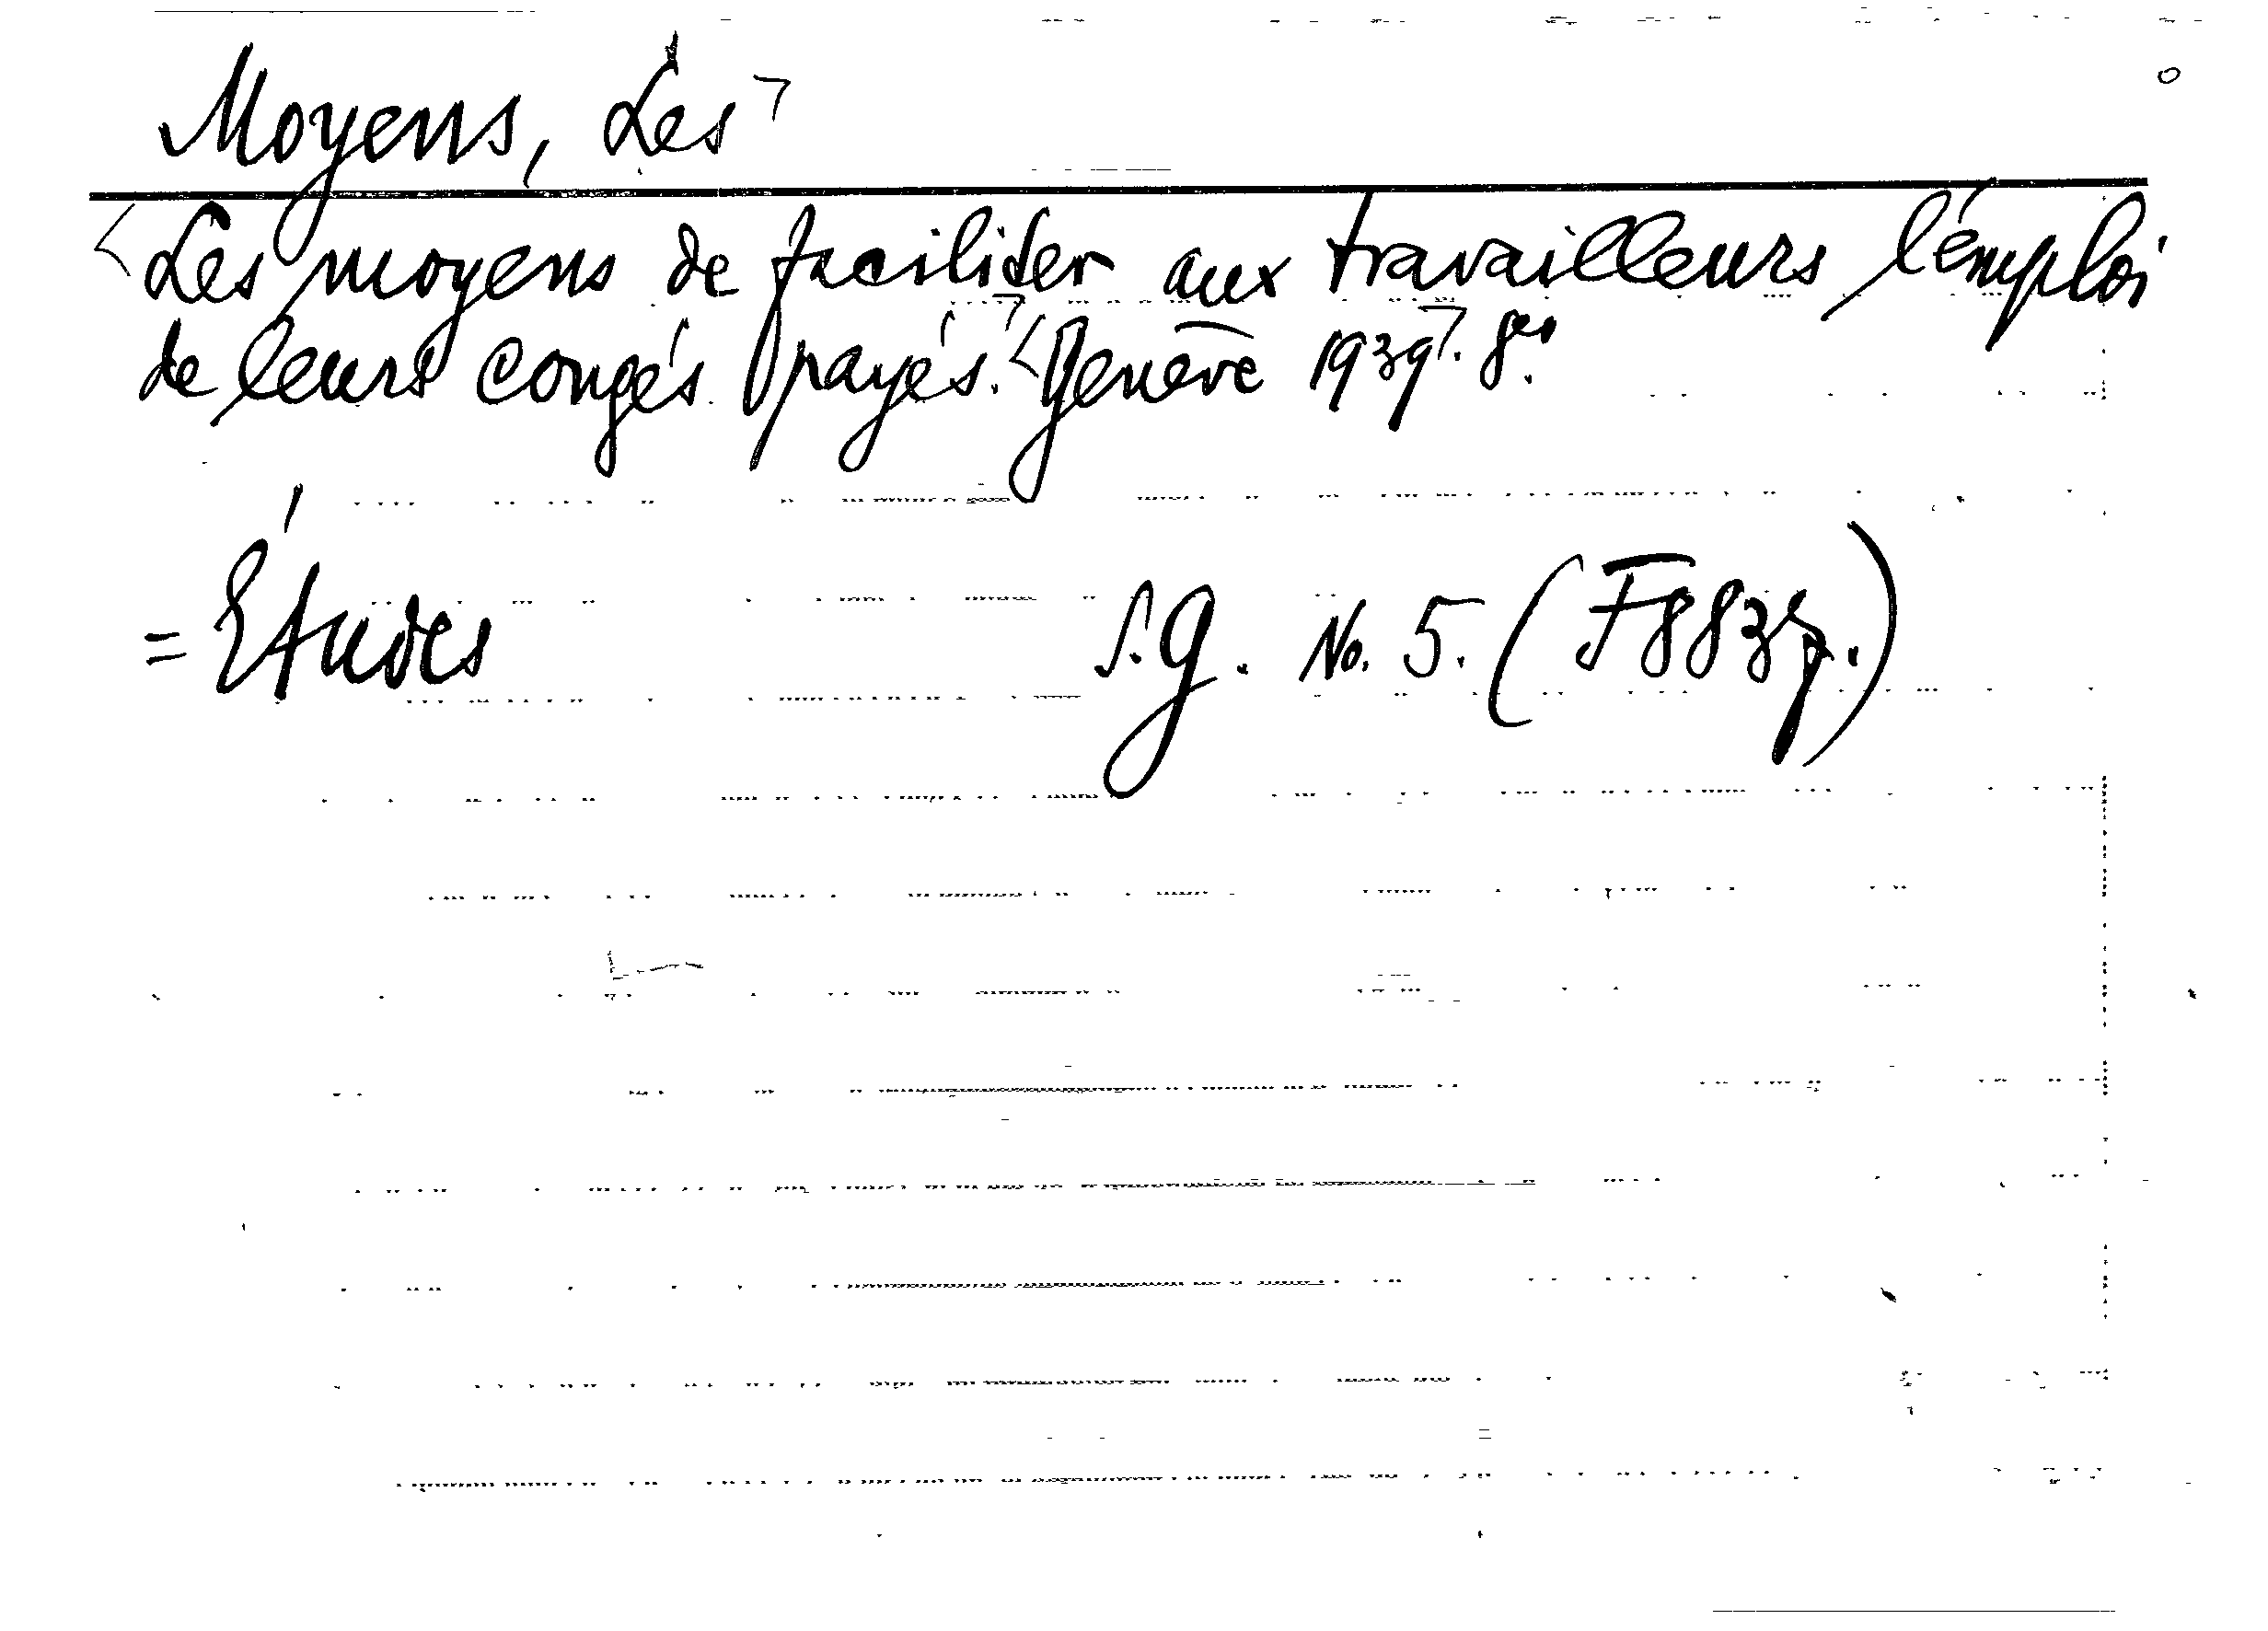 Moyens, Les
Les moyens de faciliter aux travailleurs l'emploi
de leurs congés payés. Genève 1939. 8°.
= Études S.G. No. 5. (F8839.)